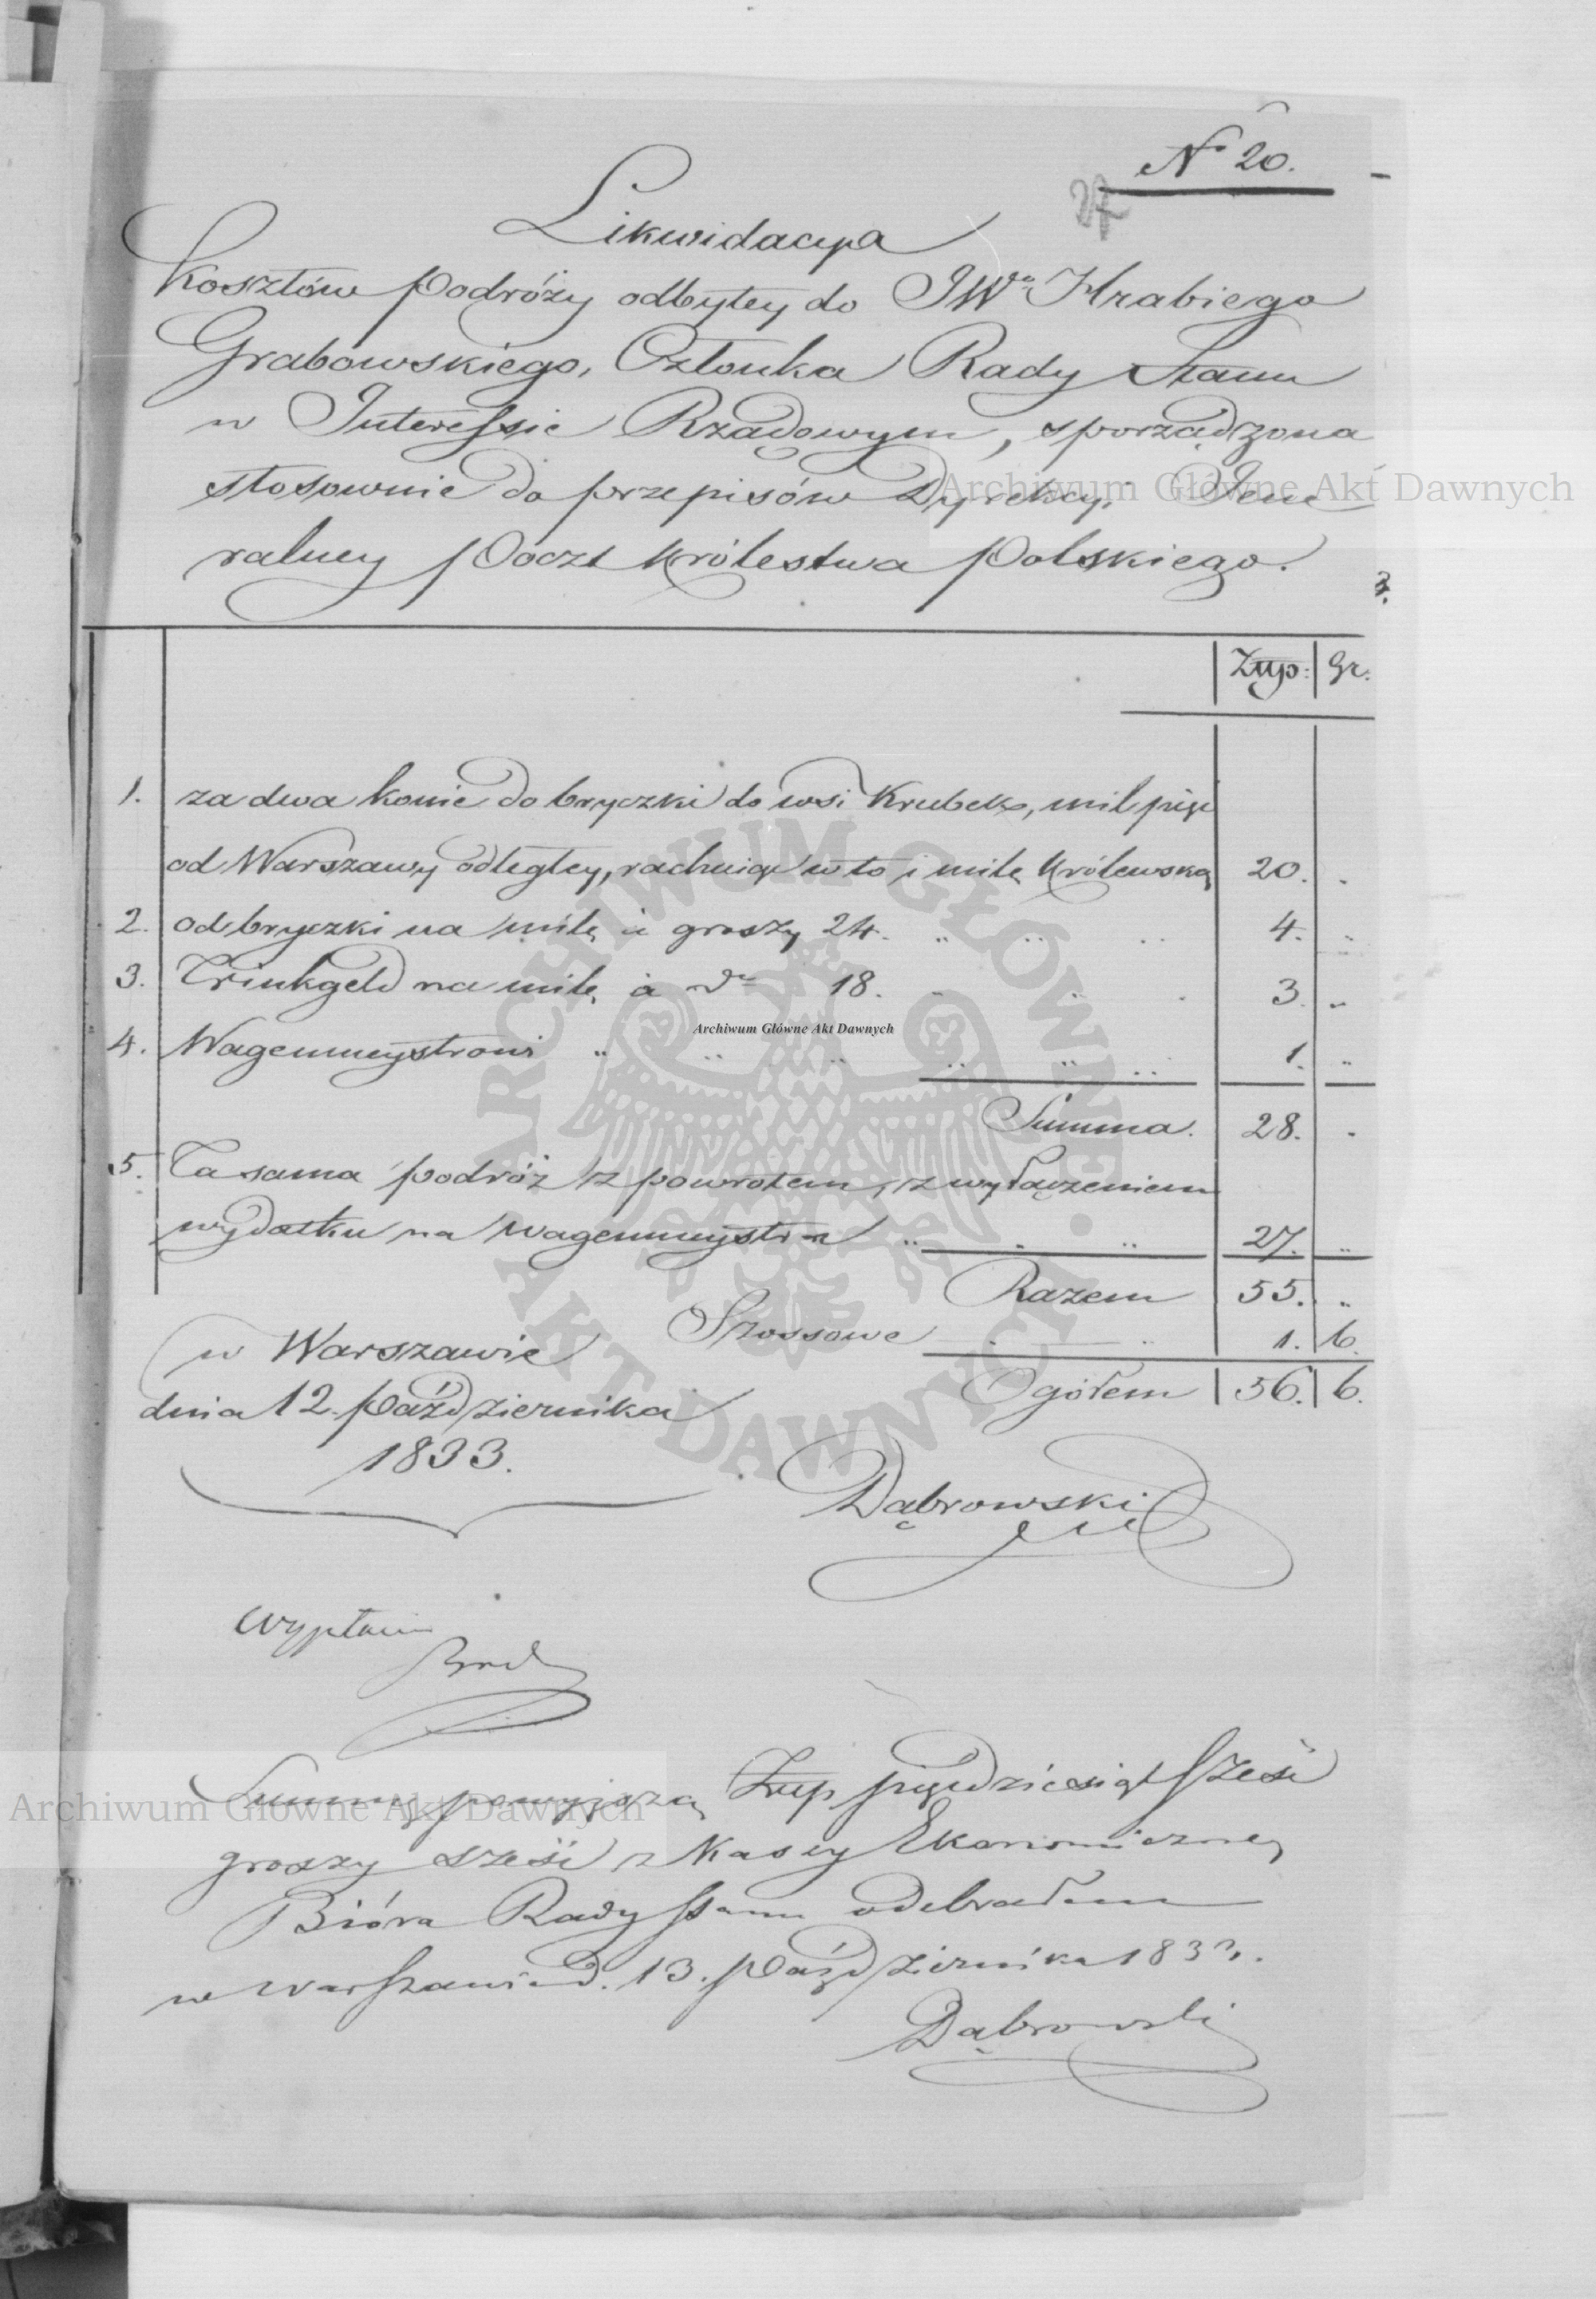 No 20.
27
Likwidacya
Kosztów podróży odbytey do JWo Hrabiego
Grabowskiego, Członka Rady Stanu
w Interessie Rządowym, sporządzona
stosownie do przepisów Dyrekcyi Jene
ralney Poczt Królestwa Polskiego.
Złtp: Gr.
1. za dwa konie do bryczki do wsi Krubek, mil pięć
od Warszawy odległey, rachuiąc w to i milę Królewską 20. .
2. od bryczki na milę à groszy 24. .. .. .. 4. ..
3. Trinkgeld na milę à do 18. . .. . 3. ..
4. Wagenmeystrowi .. .. .. .. .. .. 1. ..
Summa. 28. .
5. Ta sama podróż z powrotem, z wyłączeniem
wydatku na Wagenmeystra .. . .. 27. ..
Razem 55. ..
Szossowe . .. 1. 6.
Ogółem 56. 6.
w Warszawie
dnia 12. Października
1833.
Dąbrowski
Wypłacić
Summę powyższą Złtp pięćdziesiąt sześć
groszy sześć z Kassy Ekonomiczney
Bióra Rady Stanu odebrałem
w Warszawie d. 13. Października 1833.
Dąbrowski
Archiwum Główne Akt Dawnych
Archiwum Główne Akt Dawnych
Archiwum Główne Akt Dawnych
ARCHIWUM GŁÓWNE AKT DAWNYCH